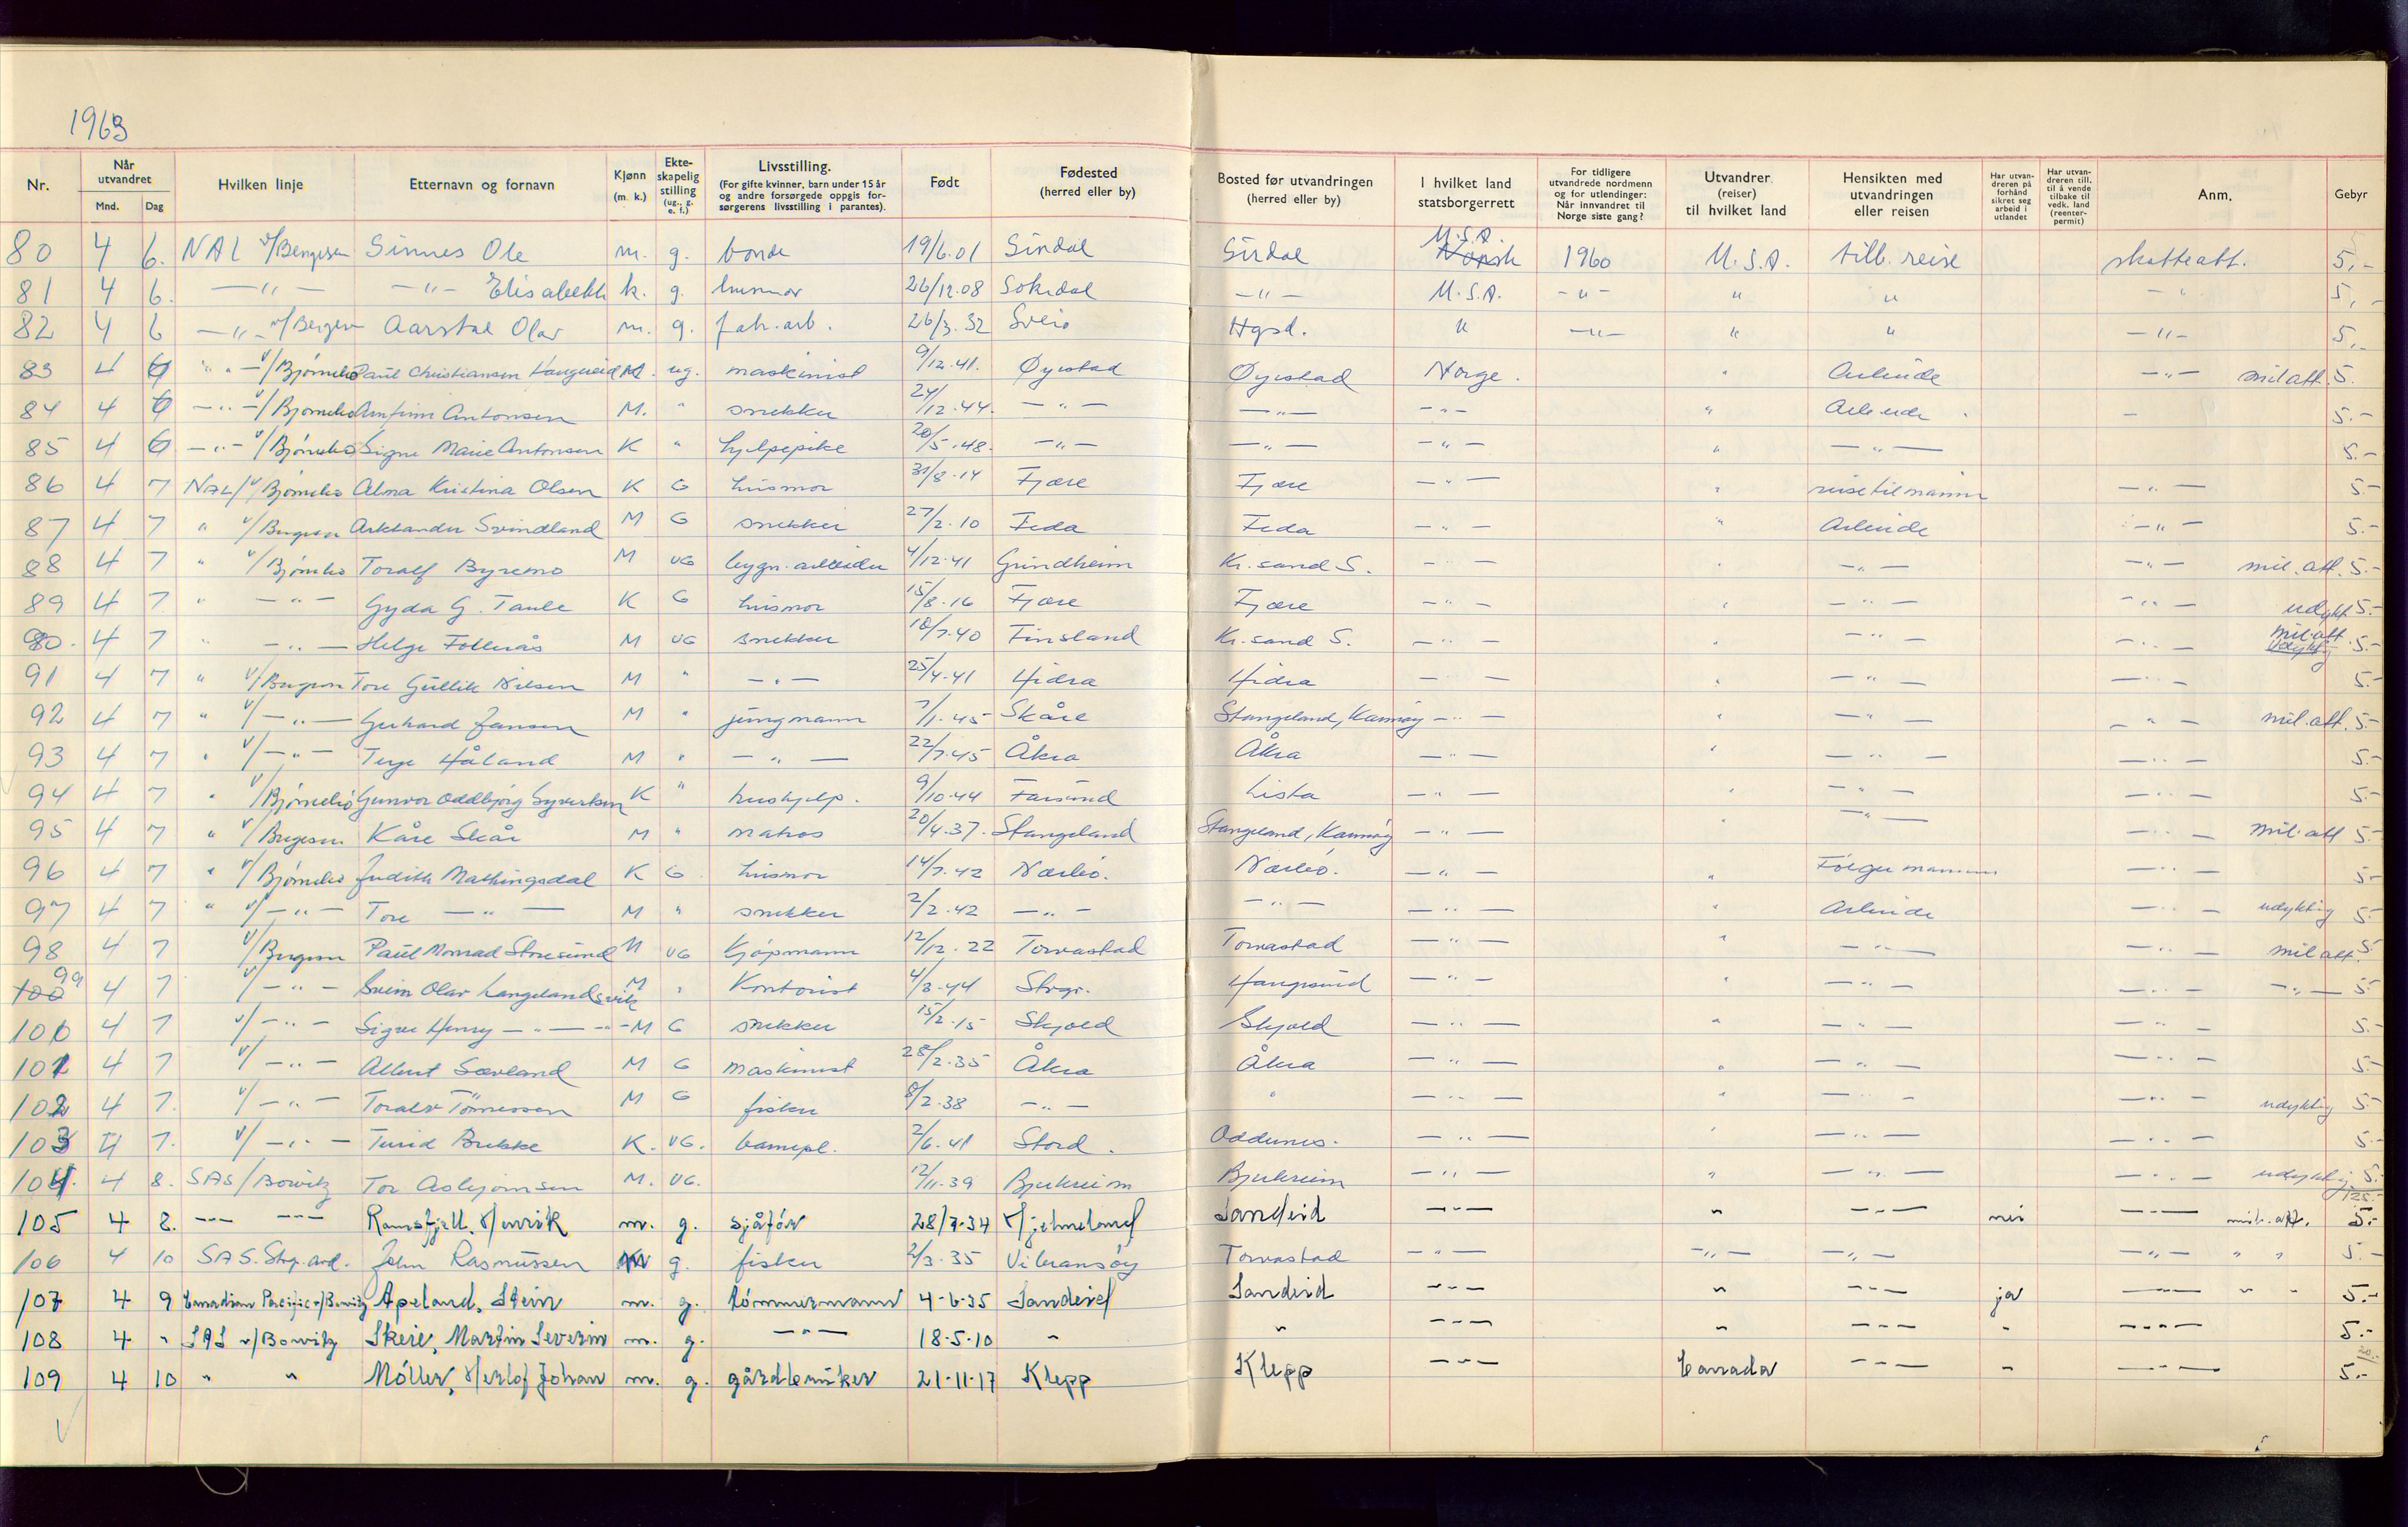 1963
Nr. Når utvandret Mnd. Dag Hvilken linje Etternavn og fornavn Kjønn (m. k.) Ekteskapelig stilling (ug., g. e. f.) Livsstilling. (For gifte kvinner, barn under 15 år og andre forsørgede oppgis forsørgerens livsstilling i parantes). Født Fødested (herred eller by) Bosted før utvandringen (herred eller by) I hvilket land statsborgerrett For tidligere utvandrede nordmenn og for utlendinger: Når innvandret til Norge siste gang? Utvandrer (reiser) til hvilket land Hensikten med utvandringen eller reisen Har utvandreren på forhånd sikret seg arbeid i utlandet Har utvandreren till. til å vende tilbake til vedk. land (reenterpermit) Anm. Gebyr
80 4 6. NAL v/Bergesen Sinnes Ole m. g. bonde 19/6.01 Sirdal Sirdal U.S.A. Norsk 1960 U.S.A. tilb. reise skatteatt. 5,-
81 4 6. —"— —"— Elisabeth k. g. husmor 26/12.08 Sokndal —"— U.S.A. -"- " " —" 5,-
82 4 6 —"— v/Bergesen Aarstal Olav m. g. fabr.arb. 26/3.32 Sveio Hgsd. " —"— " " —"— 5,-
83 4 6 " "— v/Bjørnebo Paul Christiansen M. ug. maskinist 9/12.41. Øyestad Øyestad Norge. " Arbeide —"— mil att. 5.
84 4 6 —"— v/Bjørnebo Arnfinn Antonsen M. " snekker 24/12.44. —"— —"— —"— " Arbeide — 5.-
85 4 6 —"— v/Bjørnebo Signe Marie Antonsen K " hjelpepike 20/5.48. —"— —"— —"— " —"— 5.-
86 4 7 NAL/v/Bjørnebo Alma Kristina Olsen K G husmor 31/8.14 Fjære Fjære —"— " reise til mannen —"— 5.-
87 4 7 " v/Bergesen Svindland M G snekker 27/2.10 Feda Feda —"— " Arbeide —"— 5.-
88 4 7 " v/Bjørnebo Toralf Byremo M UG bygn.arbeider 4/12.41 Grindheim Kr.sand S. —"— " —"— —"— mil. att. 5.-
89 4 7 " —"— Gyda G. Taule K G husmor 15/8.16 Fjære Fjære —"— " —"— —"— udykt 5.-
90. 4 7 " —"— Helge Follerås M UG snekker 18/7.40 Finsland Kr.sand S. —"— " —"— —"— mil.att udyktig 5.-
91 4 7 " v/Bergesen Tore Gullik Nilsen M " —"— 25/4.41 Hidra Hidra —"— " —"— —"— 5.-
92 4 7 " v/—"— Gerhard Jansen M " jungmann 7/1.45 Skåre Stangeland, Karmøy —"— " —"— —"— mil.att. 5.-
93 4 7 " v/—"— Terje Håland M " —"— 22/7.45 Åkra Åkra —"— " —"— —"— 5.-
94 4 7 " v/Bjørnebo Gunvor Oddbjørg Syvertsen K " hushjelp. 9/10.44 Farsund Lista —"— " —"— —"— 5.-
95 4 7 " v/Bergesen Kåre Skår M " matros 20/4.37. Stangeland Stangeland, Karmøy —"— " —"— —"— mil.att 5.-
96 4 7 " v/Bjørnebo Judith Mathingsdal K G husmor 14/7.42 Nærbø. Nærbø. —"— " Følger mannen —"— 5.-
97 4 7 " v/—"— Tore —"— M " snekker 2/2.42 —"— —"— —"— " Arbeide —"— udyktig 5.-
98 4 7 v/Bergesen Paul Monrad Storesund M UG kjøpmann 12/12.22 Torvastad Torvastad —"— " —"— —"— mil att. 5.-
99 100 4 7 v/—"— Svein Olav Langelandsvik M " Kontorist 4/3.44 Stvgr. Haugesund —"— " —"— —"— —"— 5.-
100 4 7 v/—"— Sigve Henry —"— —"— M G snekker 15/2.15 Skjold Skjold —"— " —"— —"— 5.-
101 4 7 v/—"— Albert Sævland M G maskinist 28/2.35 Åkra Åkra —"— " —"— —"— 5.-
102 4 7. v/—"— Toralv Tønnessen M G fisker 8/2.38 —"— " —"— " —"— —"— udyktig 5.-
103 4 7. v/—"— Turid Brekke K. UG. barnepl. 2/6.41 Stord. Oddernes. —"— " —"— —"— 5.-
104. 4 8. SAS/Bowitz Tor Asbjørnsen M. UG. 12/11.39 Bjerkreim Bjerkreim —"— " —"— —"— udyktig 5.-
125.-
105 4 8. --- --- Ramsfjell, Henrik m. g. sjåfør 28/7-34 Hjelmeland Sandeid —"— " —"— nei —"— mil. att. 5.-
106 4 10 SAS. Stvg. avd. John Rasmussen M g. fisker 2/3.35 Vibrandsøy Torvastad —"— —"— —"— —"— " " 5.-
107 4 9 Canadian Pacific v/Bowitz Apeland, Stein m. g. tømmermann 4-6-35 Sandeid Sandeid —"— " —"— ja —"— " " 5.-
108 4 " SAS v/Bowitz Skeie, Martin Severin m. g. —"— 18-5-10 " " —"— " —"— " —"— 5.-
20.-
109 4 10 " " Möller, Herlof Johan m. g. gårdbruker 21-11-17 Klepp Klepp —"— Canada —"— " —"— 5.-